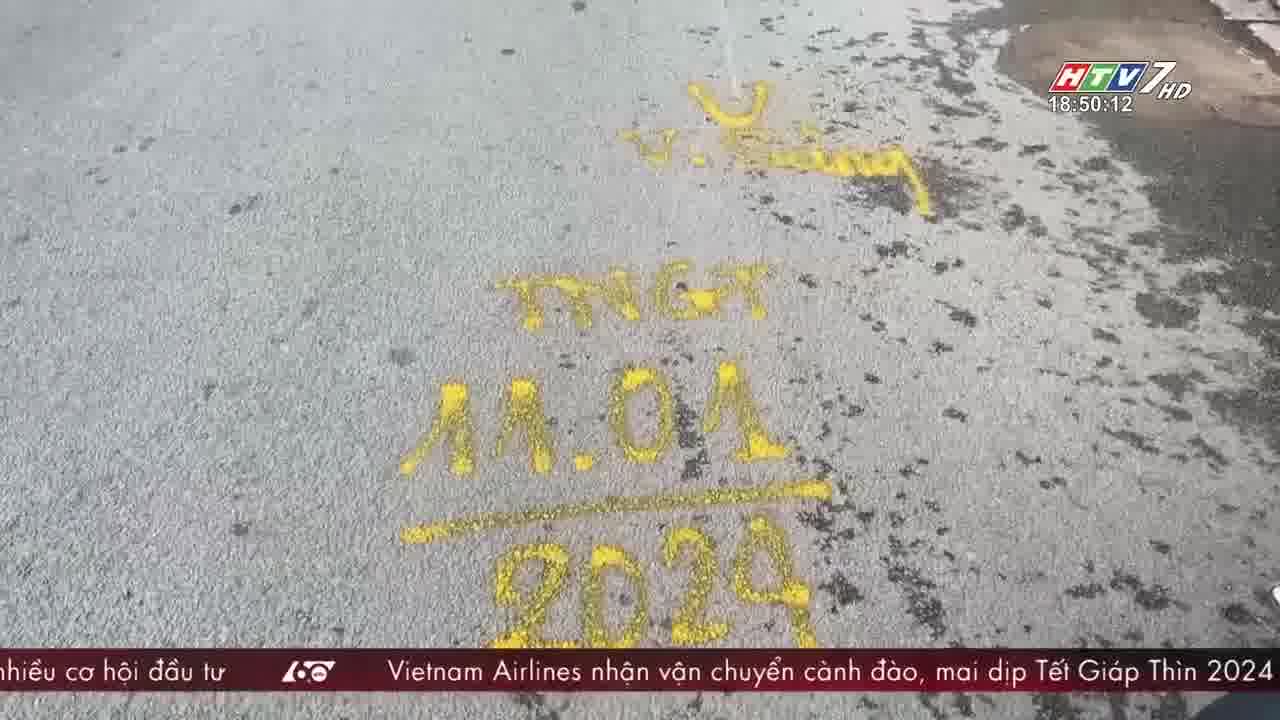 HTV7 HD
18:50:12
TNGT
11.01
2024
nhiều cơ hội đầu tư
60
Vietnam Airlines nhận vận chuyển cành đào, mai dịp Tết Giáp Thìn 2024